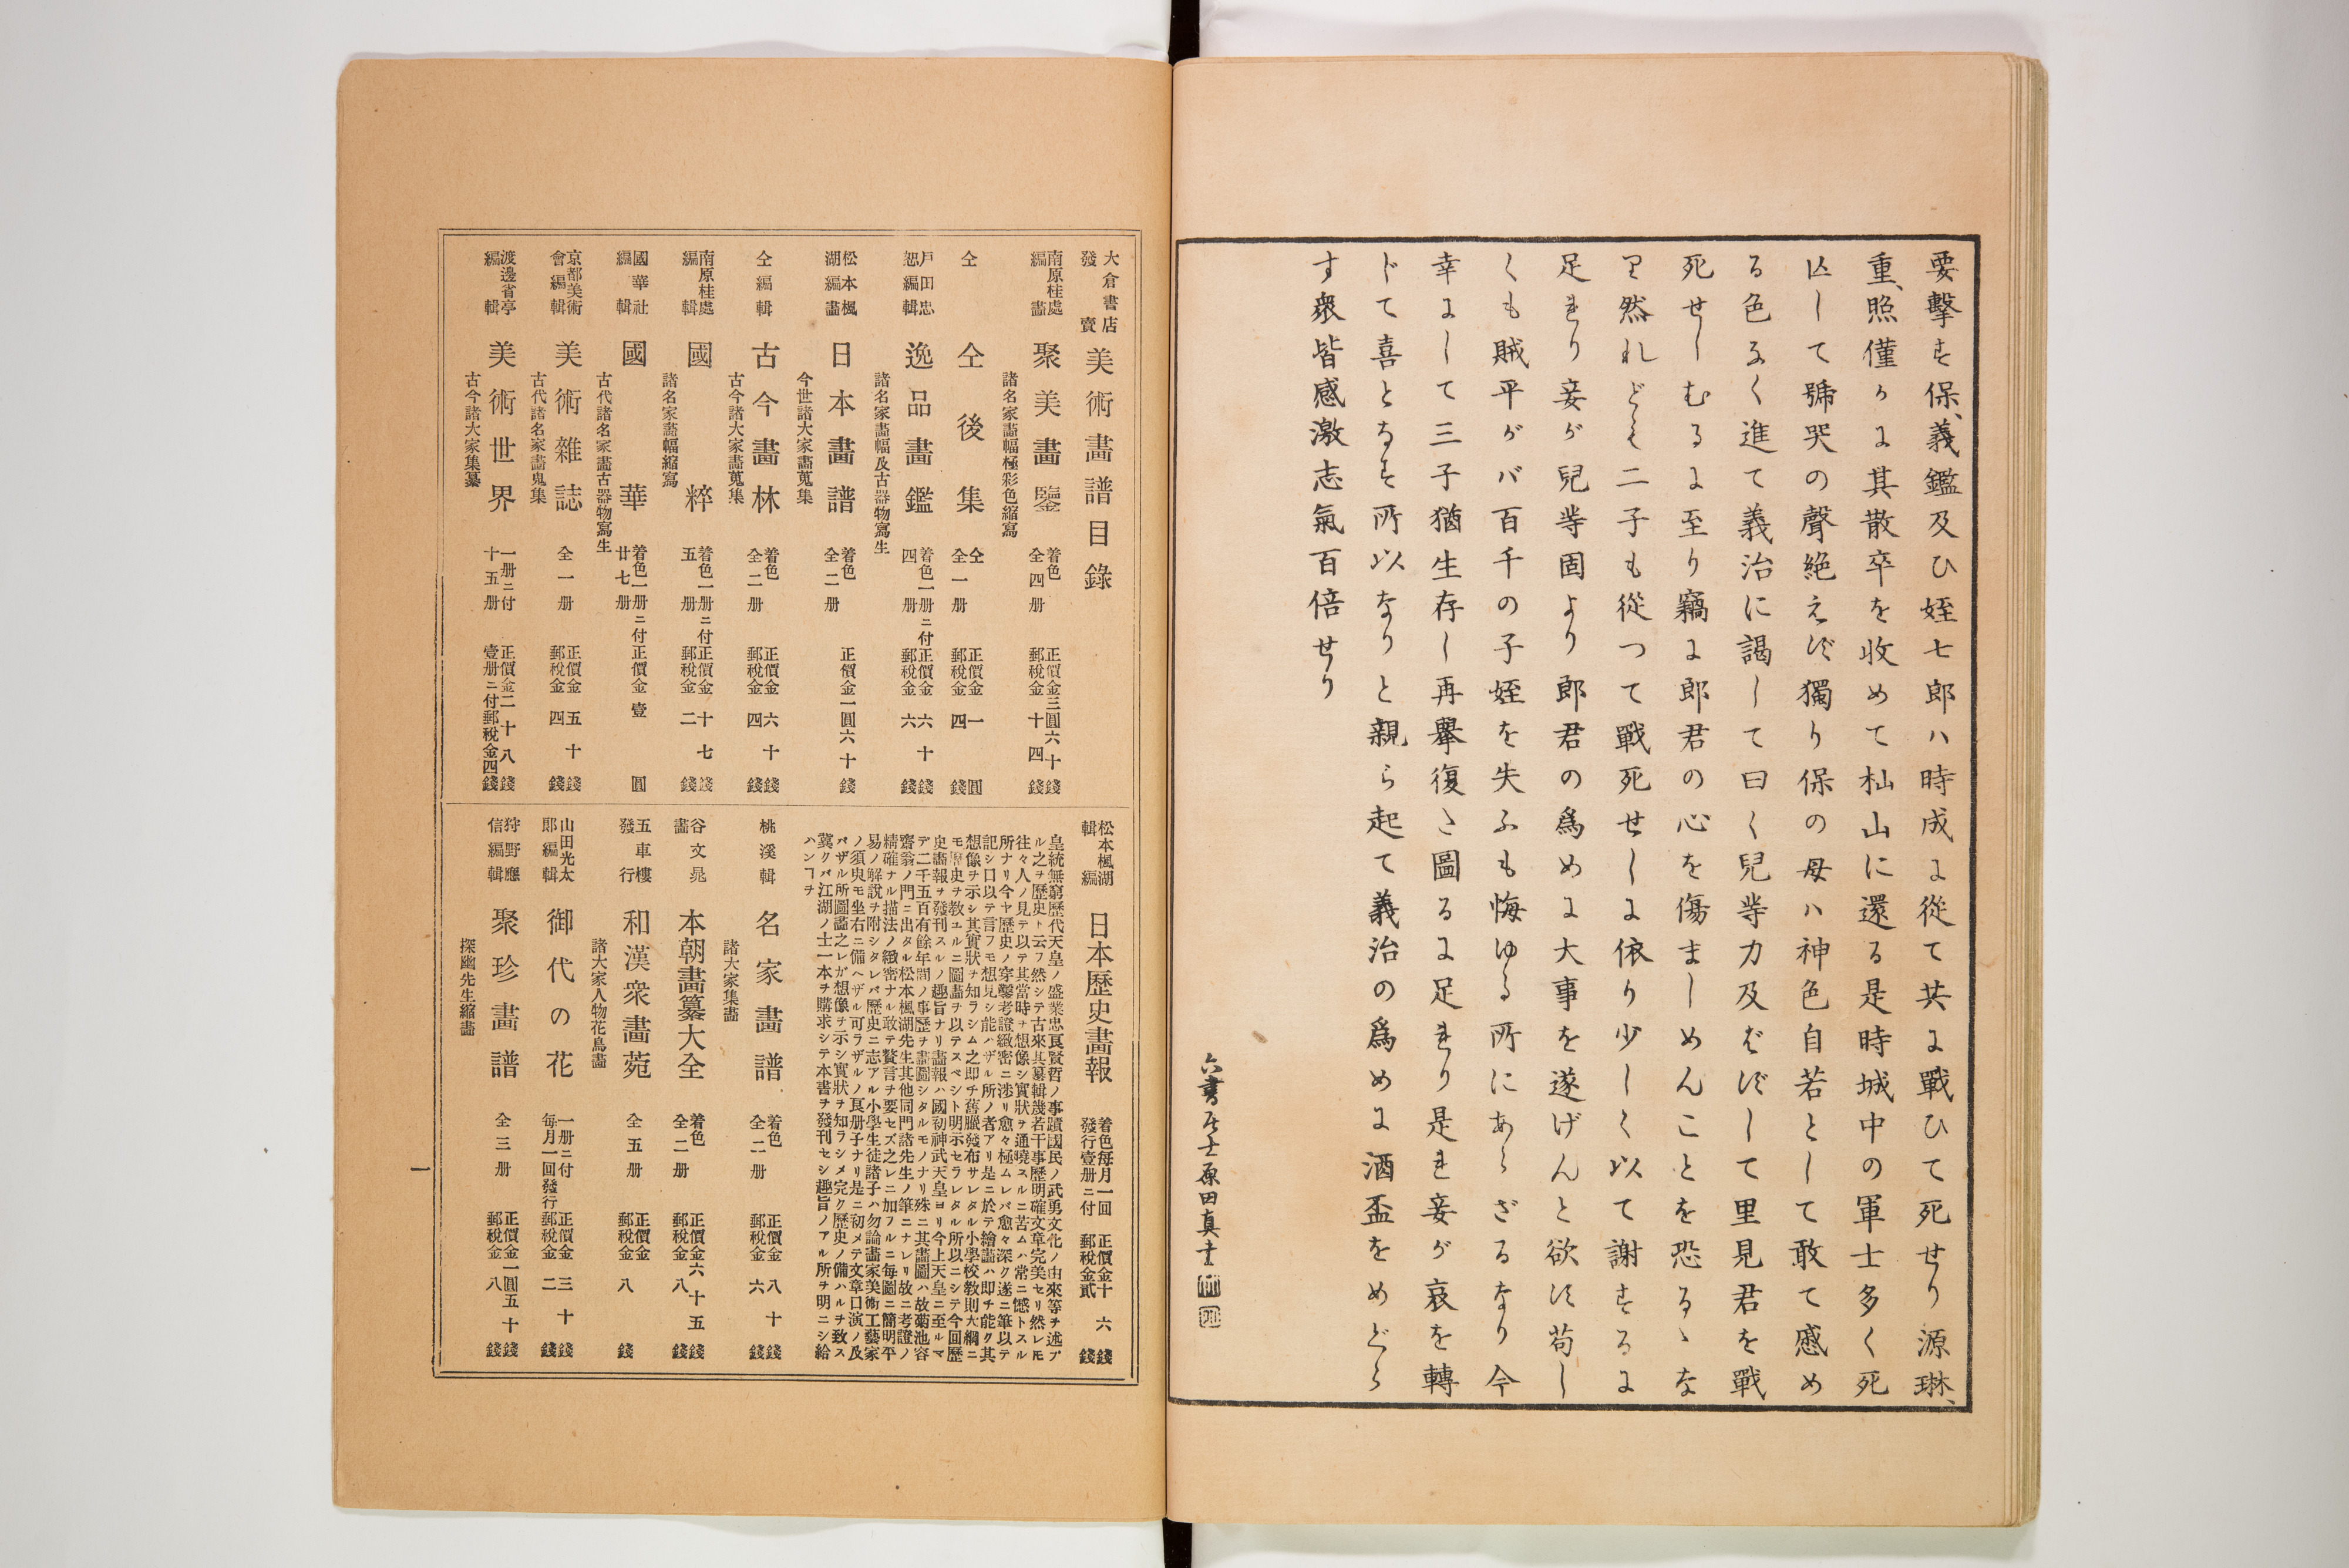 要擊す保、義鑑及ひ姪七郎ハ時成に從て共に戰ひて死せり源琳、
重、照僅かに其散卒を收めて杣山に還る是時城中の軍士多く死
亡して號哭の聲絶えず獨り保の母ハ神色自若として敢て慼め
る色なく進て義治に謁して曰く兒等力及ばずして里見君を戰
死せしむるに至り竊に郎君の心を傷ましめんことを恐るゝな
り然れども二子も從つて戰死せしに依り少しく以て謝するに
足れり妾が兒等固より郎君の爲めに大事を遂げんと欲す苟し
くも賊平がバ百千の子姪を失ふも悔ゆる所にあらざるなり今
幸にして三子猶生存し再擧復た圖るに足れり是れ妾が哀を轉
じて喜となす所以なりと親ら起て義治の爲めに酒盃をめぐら
す衆皆感激志氣百倍せり
六書居士原田真書
大倉書店發賣 美術畫譜目錄
南原桂處編畫 聚美畫鑒 着色全四册 正價金三圓六十錢 郵稅金十四錢
諸名家畫幅極彩色縮寫
仝 仝後集 仝全一册 正價金一圓 郵稅金四錢
戸田忠恕編輯 逸品畫鑑 着色一册ニ付四册 正價金六十錢 郵稅金六錢
諸名家畫幅及古器物寫生
松本楓湖編畫 日本畫譜 着色全二册 正價金一圓六十錢
今世諸大家畫蒐集
仝編輯 古今畫林 着色全二册 正價金六十錢 郵稅金四錢
古今諸大家畫蒐集
南原桂處編輯 國粹 着色一册ニ付五册 正價金十七錢 郵稅金二錢
諸名家畫幅縮寫
國華社編輯 國華 着色一册ニ付廿七册 正價金壹圓
古代諸名家畫古器物寫生
京都美術會編輯 美術雜誌 全一册 正價金五十錢 郵稅金四錢
古代諸名家畫鬼集
渡邊省亭編輯 美術世界 一册ニ付十五册 正價金二十八錢 壹册ニ付郵稅金四錢
古今諸大家集纂
松本楓湖編輯 日本歷史畫報 着色每月一回發行壹册ニ付 正價金十六錢 郵稅金貳錢
皇統無窮歷代天皇ノ盛業忠良賢哲ノ事蹟國民ノ武勇文化ノ由來等ヲ述ブ
ル之ヲ歷史ト云フ然シテ古來其纂輯幾若干事歷明確文章完美セリ然レモ
往々人ノ見テ以テ其當時ヲ想像シ實狀ヲ通曉スルニ苦ムハ常ニ憾トスル
所ナリ今ヤ歷史ノ穿鑿考證緻密ニ涉リ愈々極ムレバ愈々深ク遂ニ筆以テ
記シ口以テ言フモ想見シ能ハザル所ノ者アリ是ニ於テ繪畵ハ即チ能ク其
想像ヲ示シ其實狀ヲ知ラシム之即チ舊臘發布サレタル小學校敎則大綱ニ
モ歷史ヲ敎ユルニ圖畵ヲ以テスベシト明示セラレタル所以ニシテ今回歷
史畵報ヲ發刊スルノ趣旨ナリ畵報ハ國初神武天皇ヨリ今上天皇ニ至ルマ
デ二千五百有餘年間ノ事歷ヲ畵圖シタルモノナリ殊ニ其畵圖ハ故菊池容
齋翁ノ門ニ出タル松本楓湖先生其他同門諸先生ノ筆ニナレリ故ニ考證ノ
精確ナル描法ノ緻密ナル敢テ贅言ヲ要セズ之レニ加フルニ每圖ニ簡明平
易ノ解說ヲ附シタレバ歷史ニ志アル小學生徒諸子ハ勿論畵家美術工藝家
ノ須臾モ坐右ニ備ヘザル可ラザルノ良册子ナリ是ニ初メテ文章口演ノ及
バザル所圖畵之レガ想像ヲ示シ實狀ヲ知ラシメ完ク歷史ノ備ハルヲ致ス
冀クバ江湖ノ士一本ヲ購求シテ本書ヲ發刊セシ趣旨ノアル所ヲ明ニシ給
ハンヿヲ
桃溪輯 名家畫譜 着色全二册 正價金八十錢 郵稅金六錢
諸大家集畵
谷文晁畵 本朝畫纂大全 着色全二册 正價金六十五錢 郵稅金八錢
五車樓發行 和漢衆畫苑 全五册 正價金 郵稅金八錢
諸大家人物花鳥畵
山田光太郞編輯 御代の花 一册ニ付每月一回發行 正價金三十錢 郵稅金二錢
狩野應信編輯 聚珍畫譜 全三册 正價金一圓五十錢 郵稅金八錢
探幽先生縮畵
一